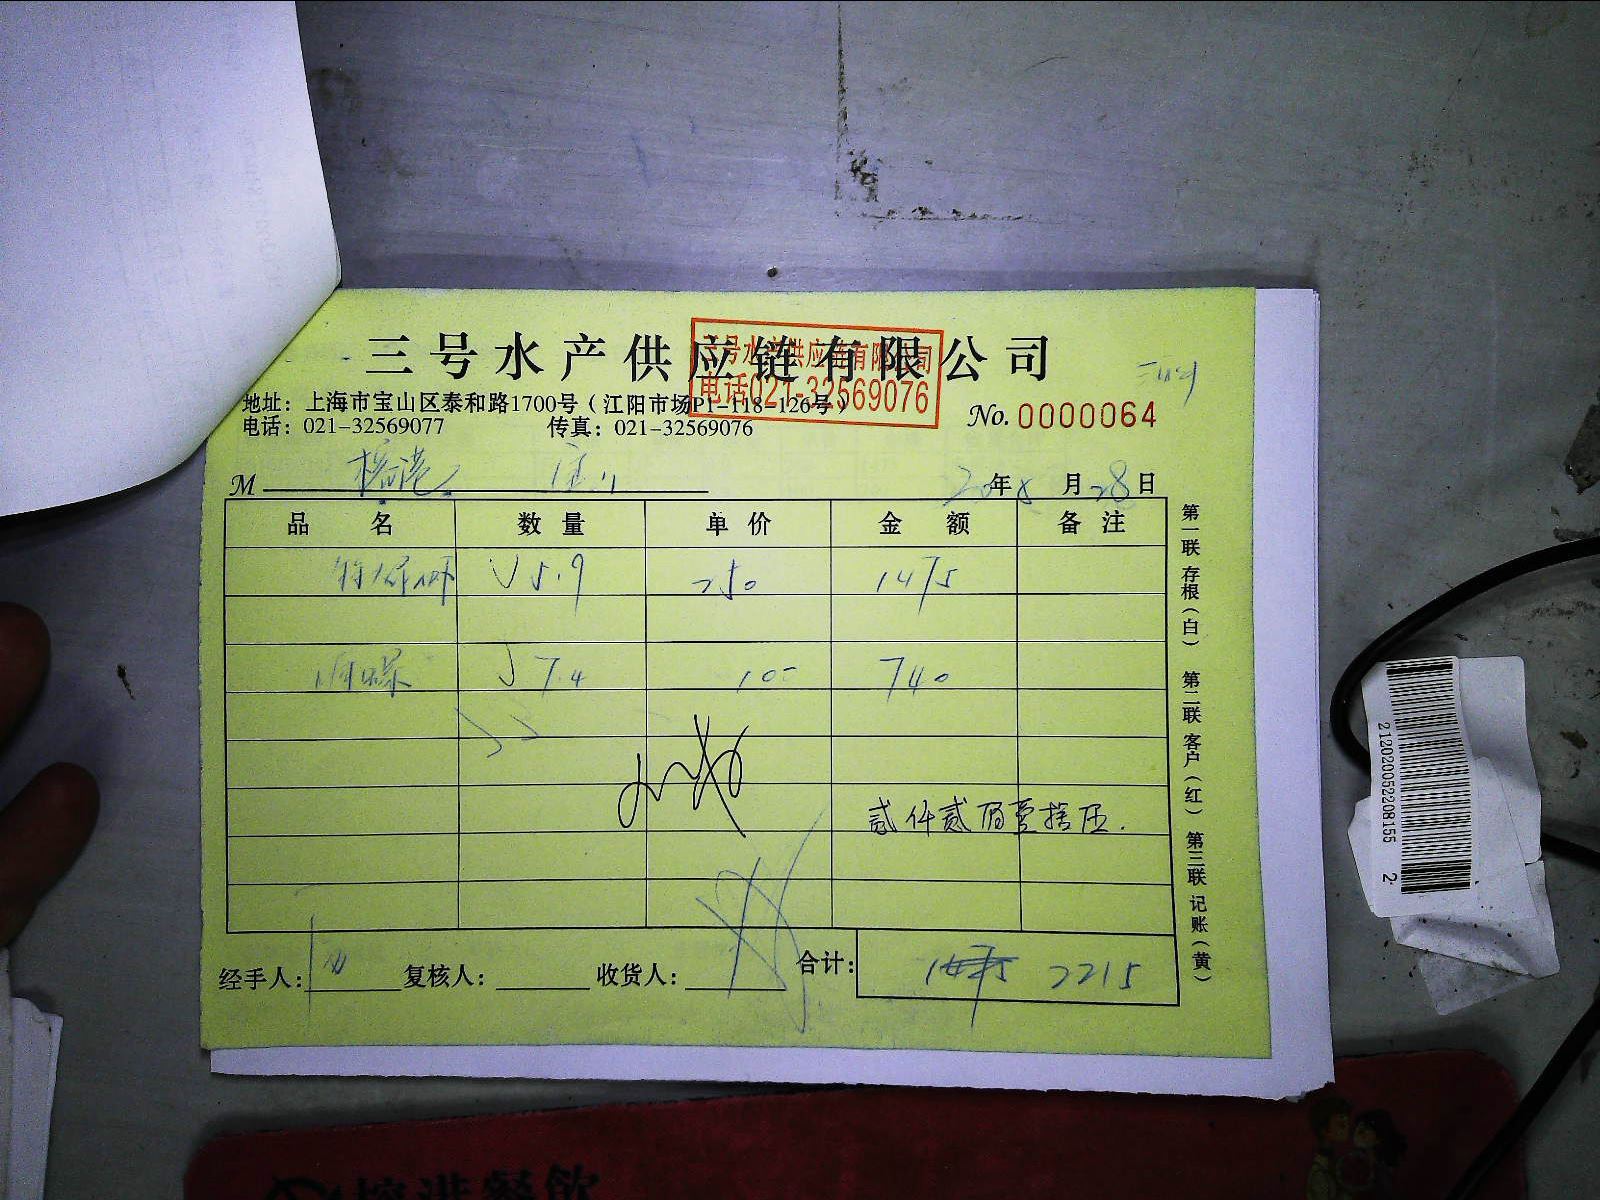 三号水产供应链有限公司
三号水产供应链有限公司
电话021-32569076
地址：上海市宝山区泰和路1700号（江阳市场P1-118-126号）
电话：021-32569077 传真：021-32569076
No. 0000064
M
20年8月28日
品名 数量 单价 金额 备注
5.9 250 1475
7.4 100 740
贰仟贰佰壹拾伍.
经手人： 复核人： 收货人： 合计： 2215
第一联 存根（白） 第二联 客户（红） 第三联 记账（黄）
212020052208155 2